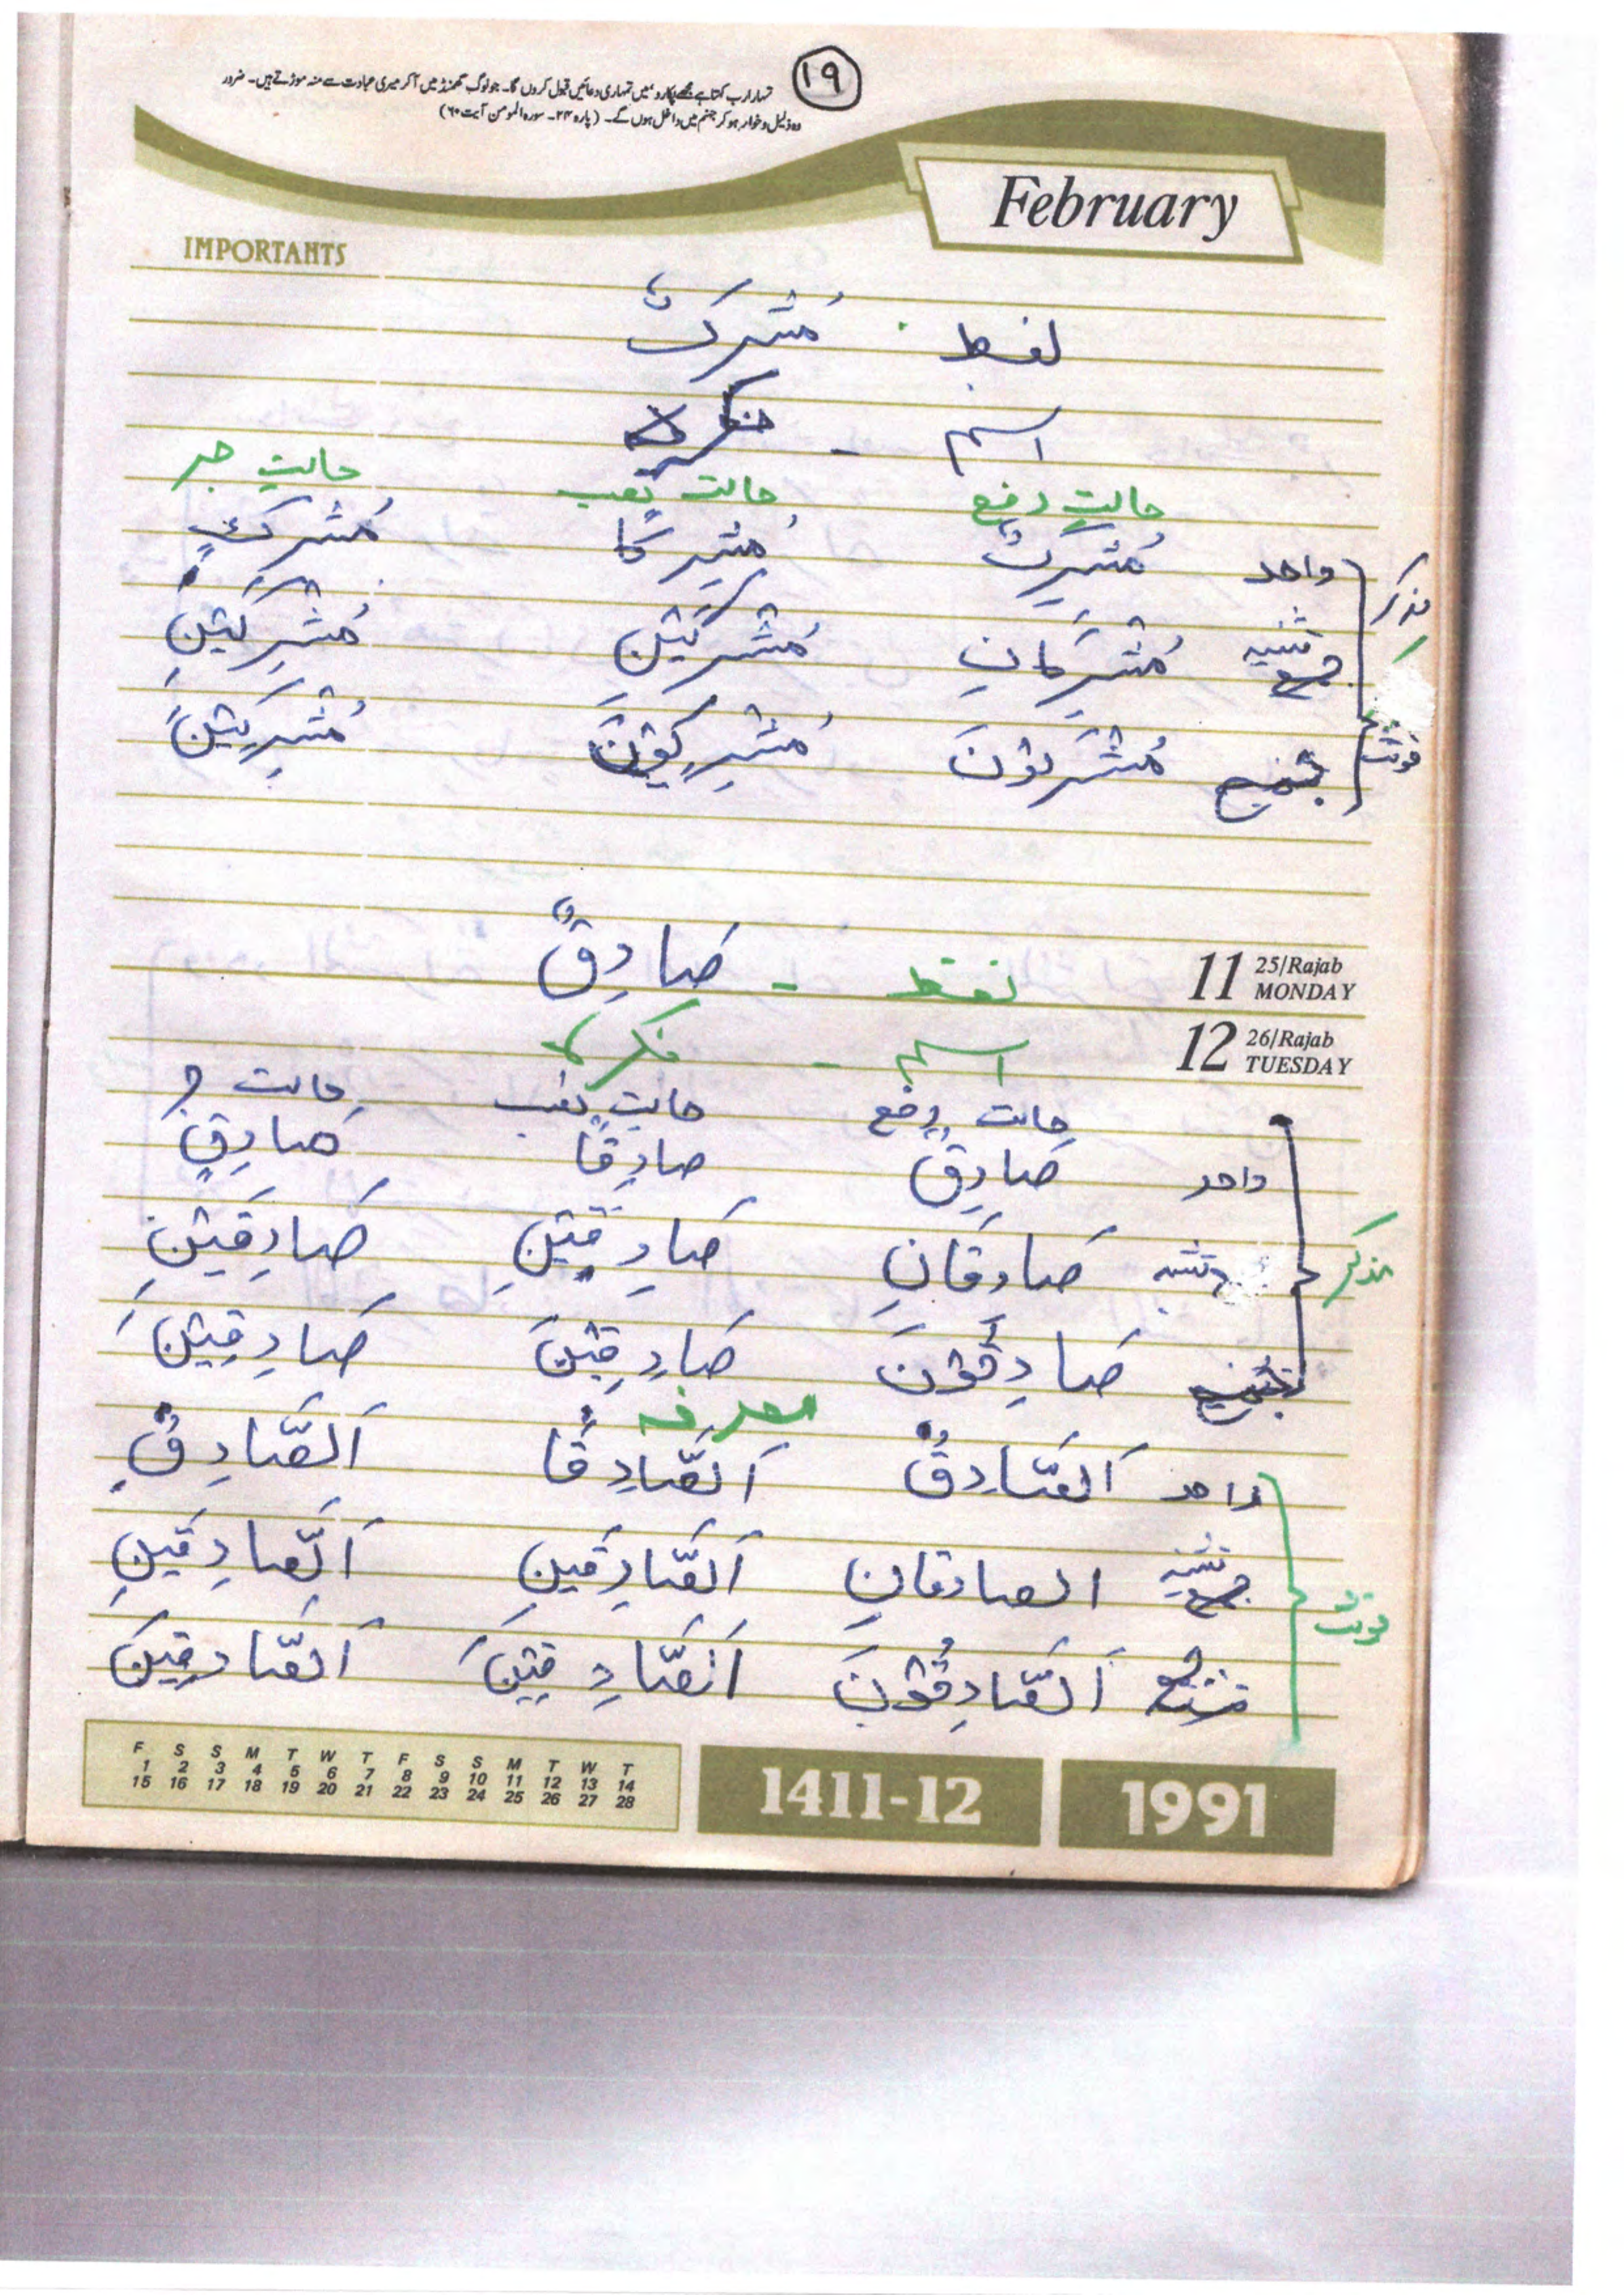 ۱۹
تمہارا رب کہتا ہے مجھے پکارو، میں تمہاری دعائیں قبول کروں گا۔ جو لوگ گھمنڈ میں آکر میری عبادت سے منہ موڑتے ہیں۔ ضرور
وہ ذلیل و خوار ہو کر جہنم میں داخل ہوں گے۔ (پارہ ۲۴۔ سورہ المومن آیت ۶۰)
February
IMPORTANTS
لفظ مُشرکٌ
اسم - نکرہ
حالتِ رفع حالت نصب حالتِ جر
مذکر واحد مُشرِکٌ مُشرِکًا مُشرکٍ
تثنیہ مُشرِکَانِ مُشرِکَیْنِ مُشرِکَیْنِ
مونث جمع مُشرِکوْنَ مُشرِکِیْنَ مُشرِکِیْنَ
11 25/Rajab MONDAY
لفظ - صَادِقٌ
12 26/Rajab TUESDAY
اسم - نکرہ
حالت رفع حالت نصب حالت جر
واحد صَادِقٌ صادِقًا صادِقٍ
مذکر تثنیہ صَادِقَانِ صَادِقَیْنِ صَادِقَیْنِ
جمع صَادِقُوْنَ صَادِقِیْنَ صَادِقِیْنَ
معرفہ
واحد اَلصَّادِقُ اَلصَّادِقَا اَلصَّادِقِ
مونث تثنیہ الصادقانِ اَلصَّادِقَینِ اَلصَّادِقَینِ
جمع اَلصَّادِقُوْنَ اَلصَّادِقِیْنَ اَلصَّادِقِیْنَ
F S S M T W T F S S M T W T
1 2 3 4 5 6 7 8 9 10 11 12 13 14
15 16 17 18 19 20 21 22 23 24 25 26 27 28
1411-12 1991